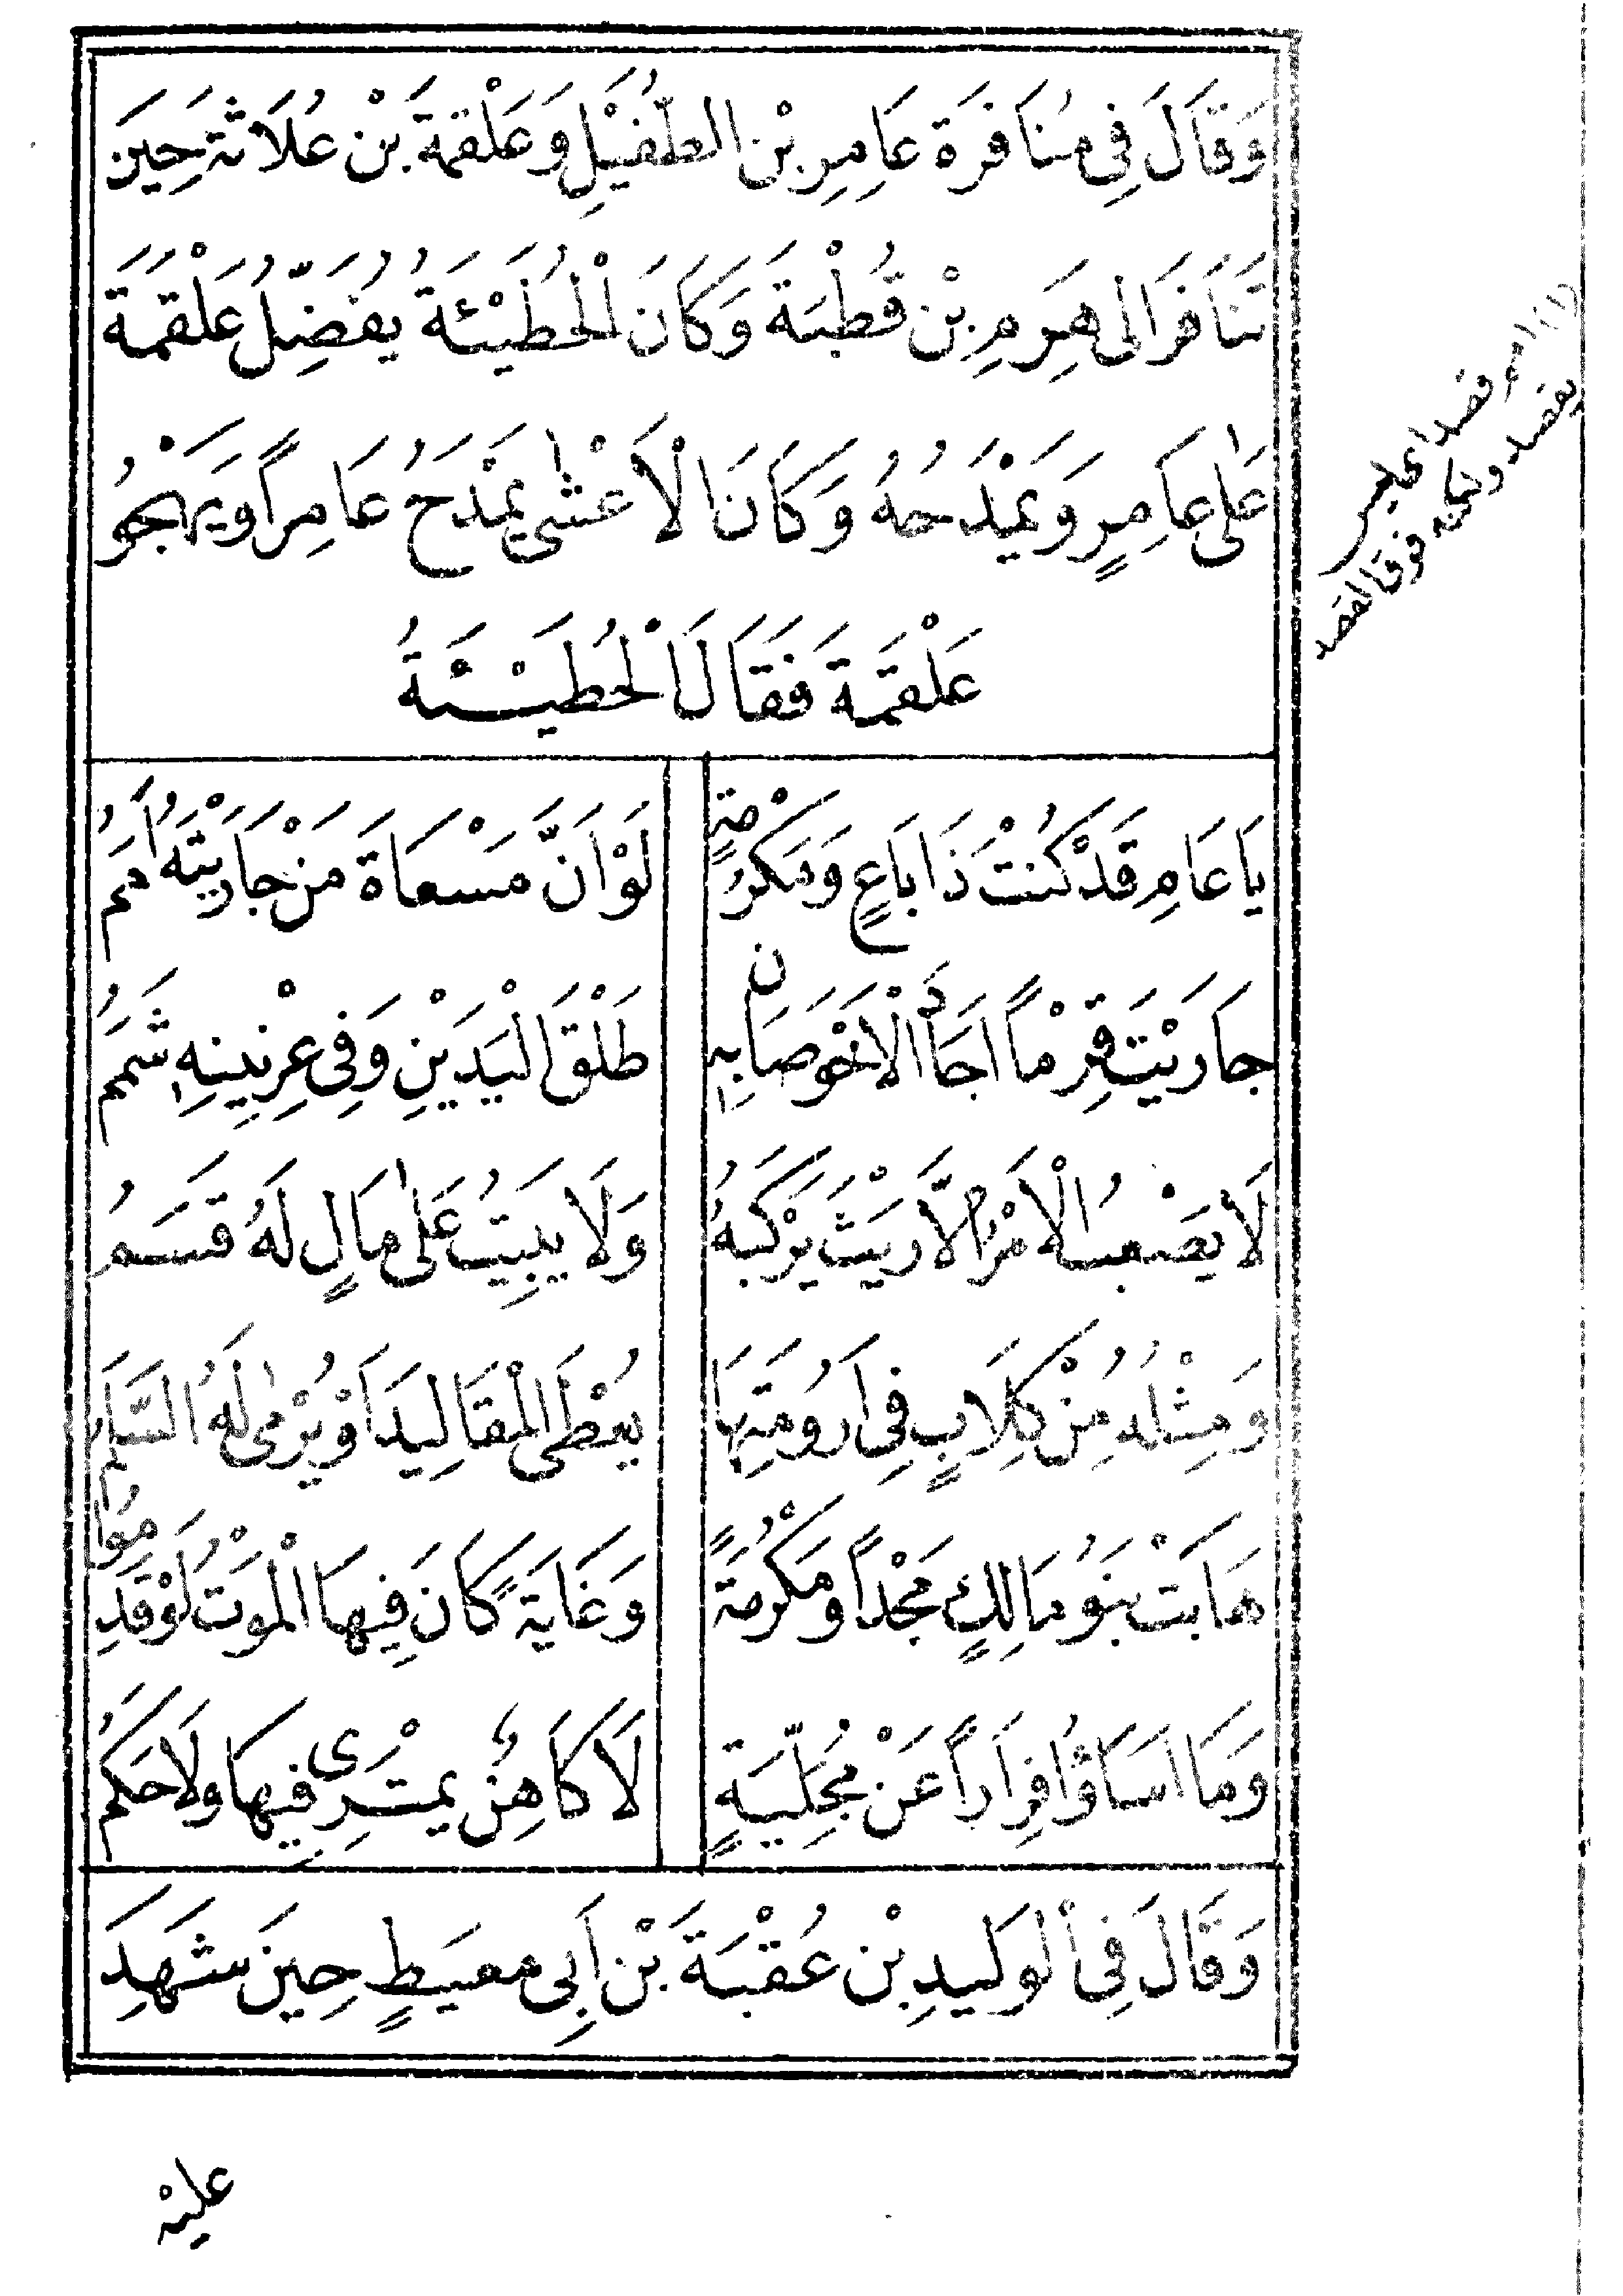 وَقَالَ فِي مُنَافَرَة عَامِرِ بْنِ الطُّفَيْلِ وَعَلْقَمَةَ بْن عُلَاثَة حِينَ
تَنَافَرَا لى هِرَمِ بْن قُطْبَةَ وَكَانَ الْحُطَيْئَةُ يُفَضِّلُ عَلْقَمَةَ
عَلٰى عَامِرٍ وَيَمْدَحُهُ وَكَانَ الْأَعْشٰى يَمْدَحُ عَامِراً وَيَهْجُو
عَلْقَمَةَ فَقَالَ الْحُطَيْئَةُ
يَا عَامِ قَدْ كُنْتَ ذَا بَاعٍ وَمَكْرُمَةٍ لَوْ اَنَّ مَسْعَاةَ مَنْ جَارَيْتَهُ اَمَمُ
جَارَيْتَ قِرْماً اَجَادَ الْاَحْوَصَانِ بِهِ طَلْقَ الْيَدَيْنِ وَفِى عِرْنِينِهِ شَمَمُ
لَا يَصْعُبُ الْاَمْرُ اِلَّا رَيْثَ يَرْكَبُهُ وَلَا يَبِيتُ عَلٰى مَالٍ لَهُ قَسَمُ
وَمِثْلُهُ مِنْ كِلَابٍ فِى اَرُومَتِهَا يُعْطَى الْمَقَالِيدَ اَوْ يُرْمٰى لَهُ السَّلَمُ
هَابَتْ بَنُو مَالِكٍ مَجْداً وَمَكْرُمَةً وَغَايَةً كَانَ فِيهَا الْمَوْتُ لَوْ قَدِمُوا
وَمَا اَسَاؤُا فِرَاراً عَنْ مُجَلِّيَةٍ لَا كَاهِنٌ يَمْتَرِى فِيهَا وَلَا حَكَمُ
وَقَالَ فِى الْوَلِيدِ بْن عُقْبَةَ بْن اَبِى مُعَيْطٍ حِينَ شَهِدَ
فوق القصد
عليْه